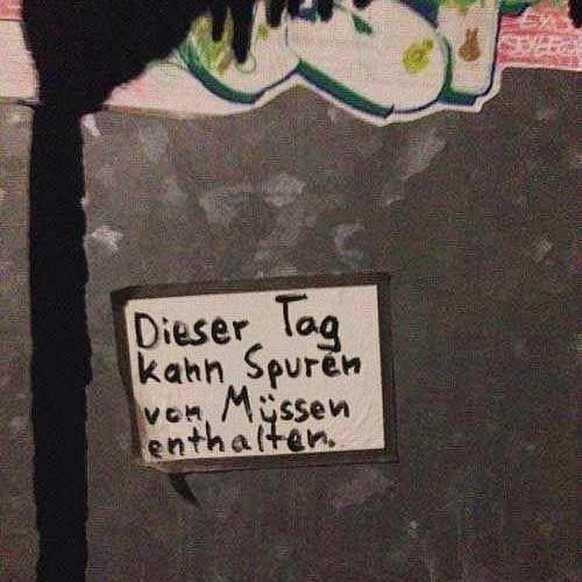 Dieser Tag
kann Spuren
von Müssen
enthalten.